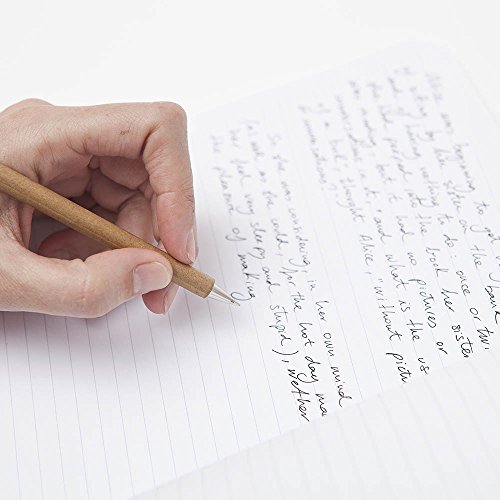 Alice was beginning to get
of sitting by her sister on the bank
and of having nothing to do: once or twi
she had peeped into the book her sister
was reading, but it had no pictures or
conversations in it, "and what is the us
of a book," thought Alice, "without pictu
conversations?"
So she was considering, in her own mind
(as well as she could, for the hot day ma
her feel very sleepy and stupid), wether
the pleasure of making